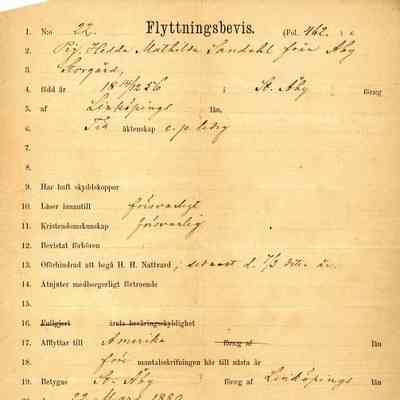 1. N:o 22. Flyttningsbevis. (Fol. 462.
2. Pig. Hedda Mathilda Sandahl från Åby
3. Storgård,
4. född år 18 14/12 56 i St. Åby förs:g
5. af Linköpings län,
6. äktenskap e. p. ledig
7.
8.
9. Har haft skyddskoppor
10. Läser innantill försvarligt
11. Kristendomskunskap försvarlig
12. Bevistat förhören
13. Oförhindrad att begå H. H. Nattvard; senast d. 7/3 detta år.
14. Åtnjuter medborgerligt förtroende
15.
16. Fullgjort årets beväringsskyldighet
17. Afflyttar till Amerika förs:g af län
18. för mantalsskrifningen här till nästa år
19. Betygas St. Åby förs:g af Linköpings län
22 Mars 1880